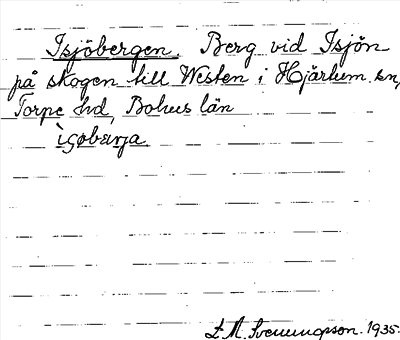 Isjöbergen. Berg vid Isjön
på skogen till Westen i Hjärtum sn,
Torpe hd, Bohus län
ìsøbærja.
1935.